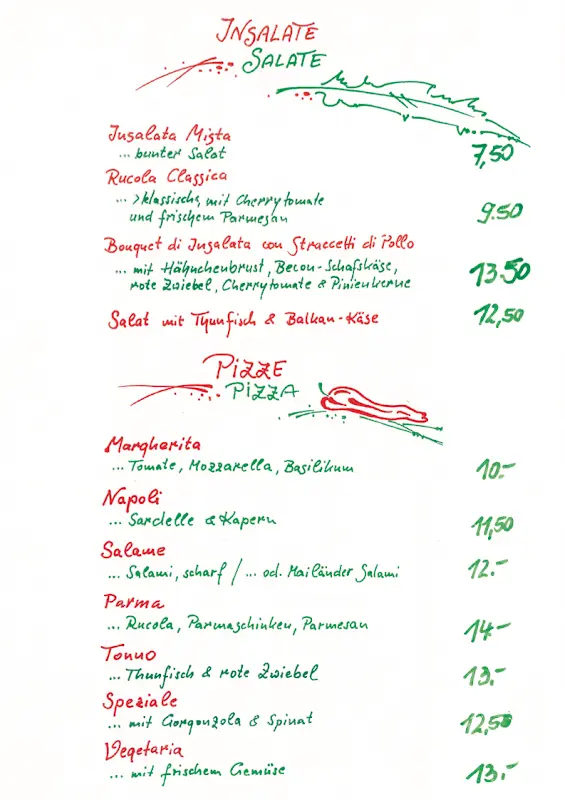 INSALATE
SALATE
Insalata Mista
... bunter Salat 7,50
Rucola Classica
... >klassisch<, mit Cherrytomate
und frischem Parmesan 9.50
Bouquet di Insalata con Straccetti di Pollo
... mit Hähnchenbrust, Becon-Schafskäse, 13.50
rote Zwiebel, Cherrytomate & Pinienkerne
Salat mit Thunfisch & Balkan-Käse 12,50
PiZZE
PiZZA
Margherita
... Tomate, Mozzarella, Basilikum 10.-
Napoli
... Sardelle & Kapern 11,50
Salame
... Salami, scharf / ... od. Mailänder Salami 12.-
Parma
... Rucola, Parmaschinken, Parmesan 14.-
Tonno
... Thunfisch & rote Zwiebel 13.-
Speziale
... mit Gorgonzola & Spinat 12,50
Vegetaria
... mit frischem Gemüse 13.-